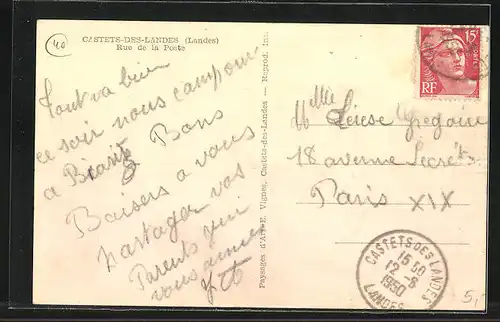 40
CASTETS-DES-LANDES (Landes)
Rue de la Poste
Tout va bien
ce soir nous campons
a Biarritz Bons
Baisers a vous
partager vos
Parents qui
vous aiment
Paysages d'Art E. Vignes, Castets-des-Landes — Reprod. Int.
15F
RF
Mlle
18 avenue Secrétan
Paris XIX
CASTETS DES LANDES
15 50
12 - 8
1950
LANDES
5,-